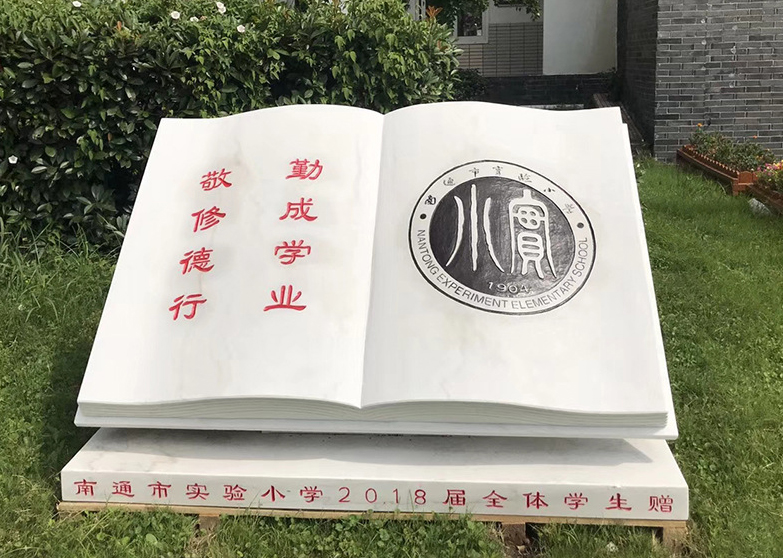 勤成学业
敬修德行
南通市實驗小學
小實
1904
NANTONG EXPERIMENT ELEMENTARY SCHOOL
南通市实验小学2018届全体学生赠